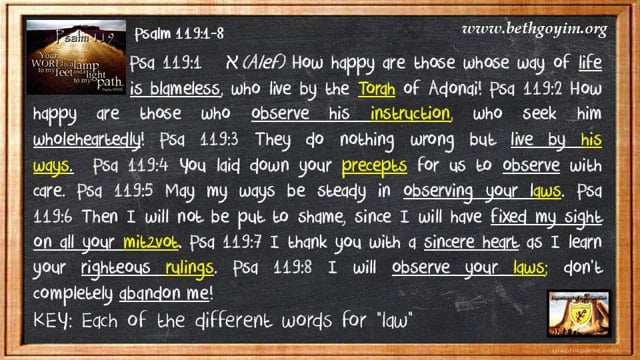 Psalm 119:1-8
www.bethgoyim.org
Psalm 119
Your
WORD is a lamp
to my feet and a light
to my path.
Psa 119:1 א (Alef) How happy are those whose way of life
is blameless, who live by the Torah of Adonai! Psa 119:2 How
happy are those who observe his instruction, who seek him
wholeheartedly! Psa 119:3 They do nothing wrong but live by his
ways. Psa 119:4 You laid down your precepts for us to observe with
care. Psa 119:5 May my ways be steady in observing your laws. Psa
119:6 Then I will not be put to shame, since I will have fixed my sight
on all your mitzvot. Psa 119:7 I thank you with a sincere heart as I learn
your righteous rulings. Psa 119:8 I will observe your laws; don't
completely abandon me!
KEY: Each of the different words for "law"